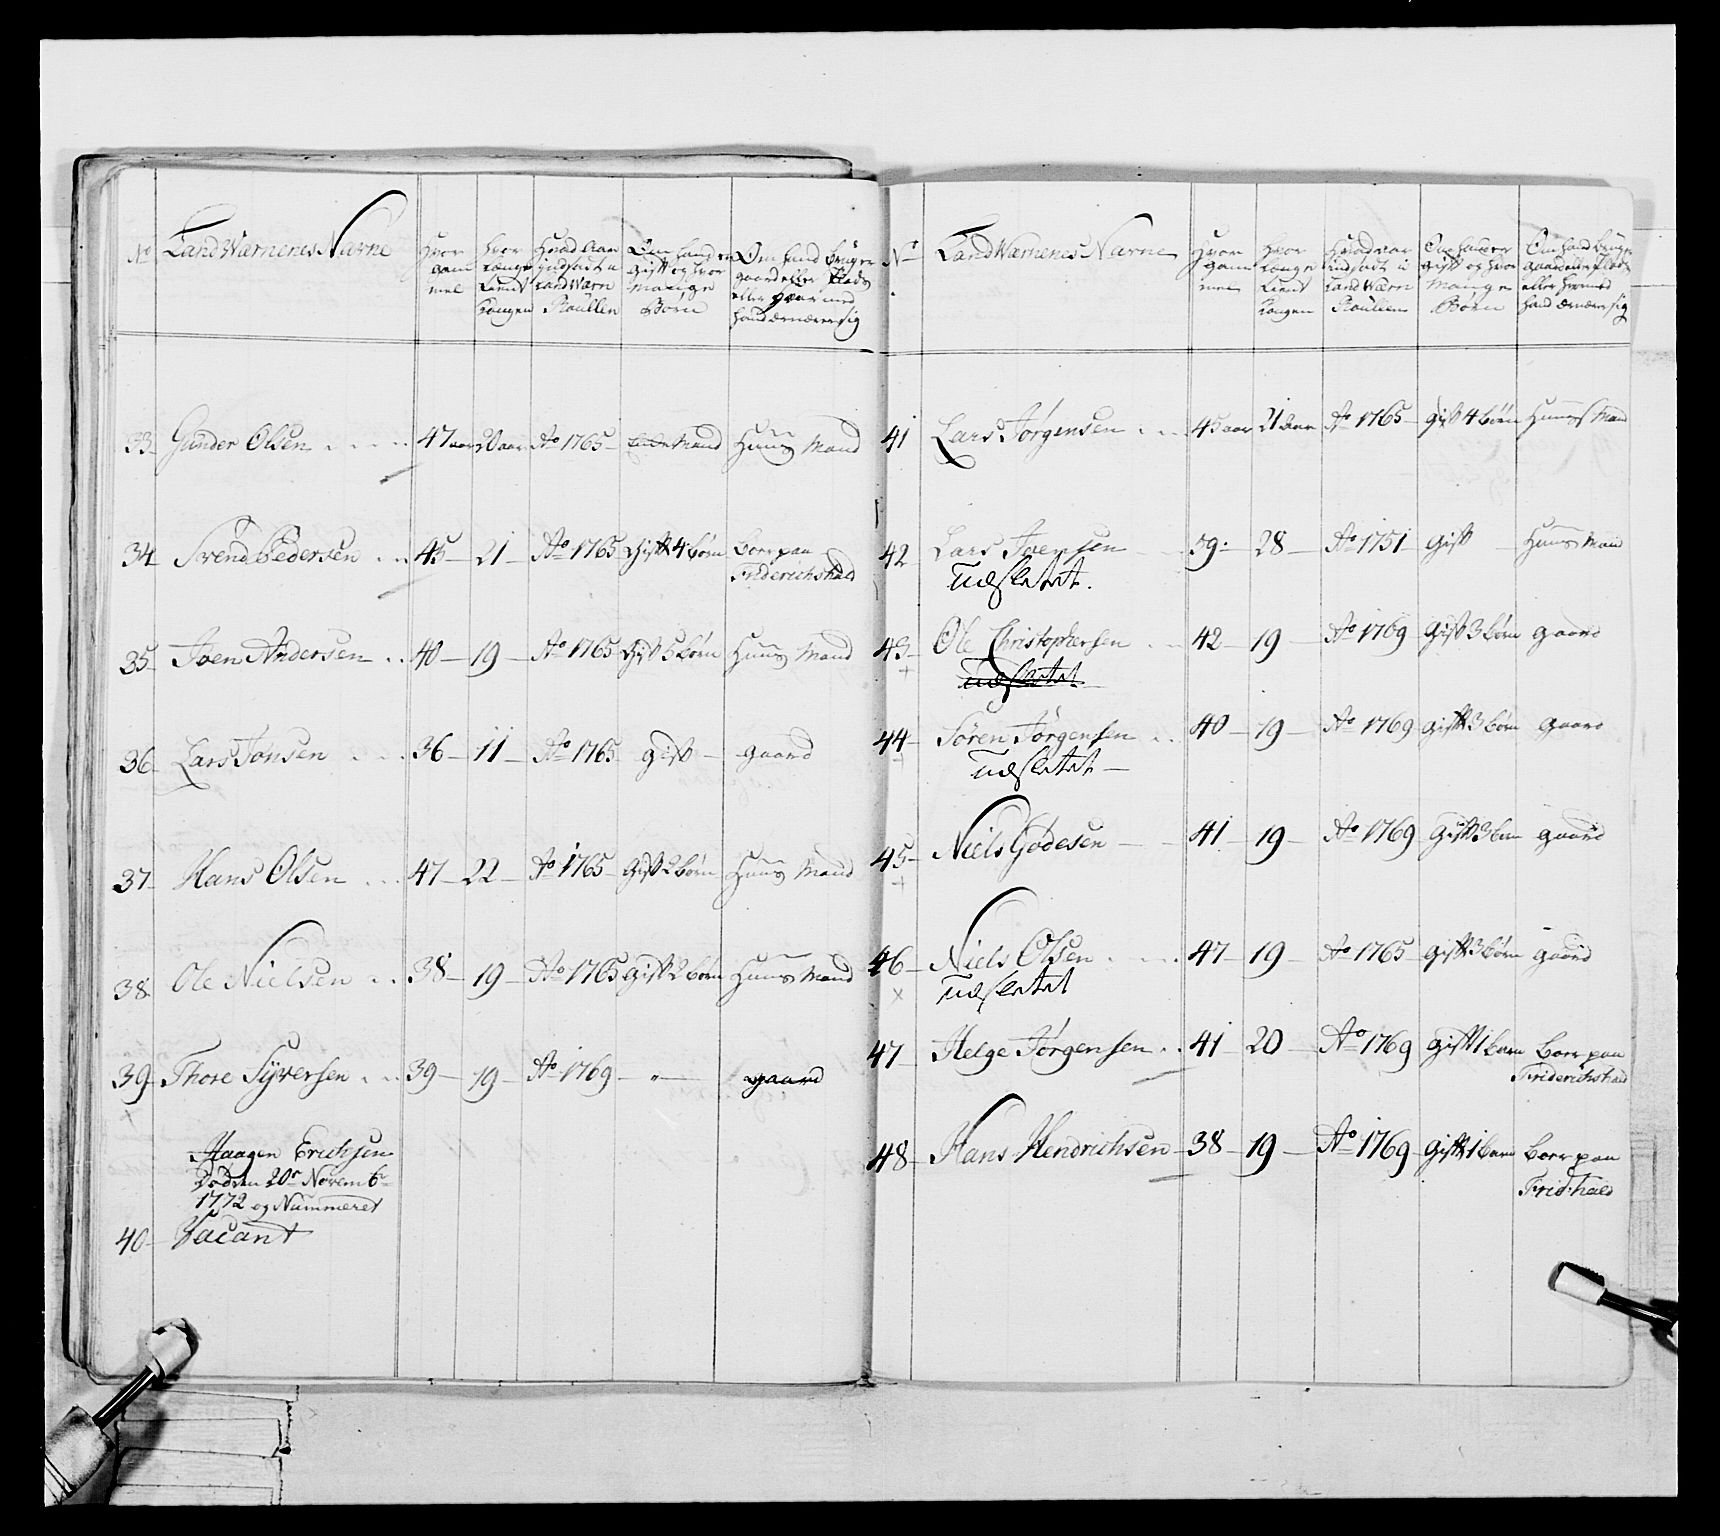 No Land Wærnenes Navne Hvor gam mel hvor længe tient Kongen Hvad aar indsadt i Land Wærn Roullen Om hand er gift og hvor mange Børn Om hand bruger gaard eller Plads eller hvormed hand ernærer sig
33 Gunder Olsen 47 aar 20 aar Ao 1765 Enke Mand Huus Mand
34 Svend Pedersen 45 21 Ao 1765 Gift 4 børn boer paa
Friderichshald
35 Joen Andersen 40 19 Ao 1765 Gift 5 børn Huus Mand
36 Lars Jonsen 36 11 Ao 1765 gift gaard
37 Hans Olsen 47 22 Ao 1765 Gift 2 børn Huus Mand
38 Ole Nielsen 38 19 Ao 1765 Gift 2 børn Huus Mand
39 Thore Syversen 39 19 Ao 1769 " gaard
Haagen Erichsen
Død den 20r Novemb
1772 og Nummeret
40 Vacant
No Land Wærnenes Navne Hvor gam mel hvor længe tient Kongen Hvad aar indsadt i Land Wærn Roullen Om hand er gift og hvor mange Børn Om hand bruger gaard eller Plads eller hvormed hand ernærer sig
41 Lars Jørgensen 45 aar 21 aar Ao 1765 gift 4 børn Huus Mand
42 Lars Joensen 59 28 Ao 1751 gift Huus Mand
Udslettet.
43 Ole Christophersen 42 19 Ao 1769 Gift 3 børn gaard
Udslettet
44 Søren Jørgensen 40 19 Ao 1769 gift 3 børn gaard
Udslettet
45 Niels Gødesen 41 19 Ao 1769 Gift 3 børn gaard
46 Niels Olsen 47 19 Ao 1765 gift 3 børn gaard
Udslettet
47 Helge Jørgensen 41 20 Ao 1769 Gift 1 barn boer paa
Friderichshald
48 Hans Hendrichsen 38 19 Ao 1769 Gift 1 barn boer paa
Frid:hald